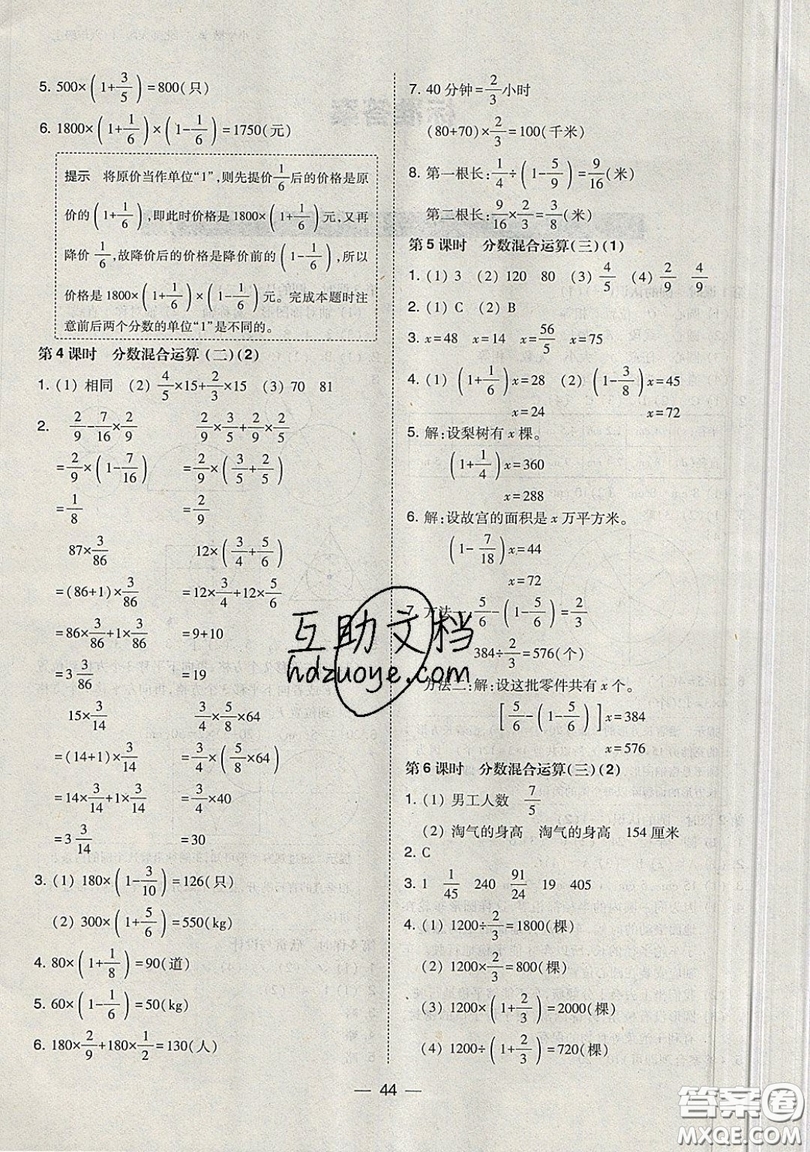 5. 500×(1+3/5)=800(只)
6. 1800×(1+1/6)×(1-1/6)=1750(元)
提示 将原价当作单位“1”,则先提价1/6后的价格是原
价的(1+1/6),即此时价格是1800×(1+1/6)元,又再
降价1/6,故降价后的价格是降价前的(1-1/6),所以
价格是1800×(1+1/6)×(1-1/6)元。完成本题时注
意前后两个分数的单位“1”是不同的。
第4课时 分数混合运算(二)(2)
1. (1) 相同 (2) 4/5×15+2/3×15 (3) 70 81
2. 2/9-7/16×2/9 2/9×3/5+2/9×2/5
=2/9×(1-7/16) =2/9×(3/5+2/5)
=1/8 =2/9
87×3/86 12×(3/4+5/6)
=(86+1)×3/86 =12×3/4+12×5/6
=86×3/86+1×3/86 =9+10
=3 3/86 =19
15×3/14 3/4×5/8×64
=(14+1)×3/14 =3/4×(5/8×64)
=14×3/14+1×3/14 =3/4×40
=3 3/14 =30
3. (1) 180×(1-3/10)=126(只)
(2) 300×(1+5/6)=550(kg)
4. 80×(1+1/8)=90(道)
5. 60×(1-1/6)=50(kg)
6. 180×2/9+180×1/2=130(人)
7. 40分钟=2/3小时
(80+70)×2/3=100(千米)
8. 第一根长:1/4÷(1-5/9)=9/16(米)
第二根长:9/16×2/3=3/8(米)
第5课时 分数混合运算(三)(1)
1. (1) 3 (2) 120 80 (3) 4/5 (4) 2/4 4/9
2. (1) C (2) B
3. x=48 x=14 x=56/5 x=75
4. (1) (1+1/6)x=28 (2) (1-3/8)x=45
x=24 x=72
5. 解:设梨树有x棵。
(1+1/4)x=360
x=288
6. 解:设故宫的面积是x万平方米。
(1-7/18)x=44
x=72
7. 方法一:5/6-(1-5/6)=2/3
384÷2/3=576(个)
方法二:解:设这批零件共有x个。
[5/6-(1-5/6)]x=384
x=576
第6课时 分数混合运算(三)(2)
1. (1) 男工人数 7/5
(2) 淘气的身高 淘气的身高 154厘米
2. C
3. 1 1/45 240 91/24 19 405
4. (1) 1200÷2/3=1800(棵)
(2) 1200×2/3=800(棵)
(3) 1200×(1+2/3)=2000(棵)
(4) 1200÷(1+2/3)=720(棵)
44
互助文档
hdzuoye.com
答案圈
MXQE.COM